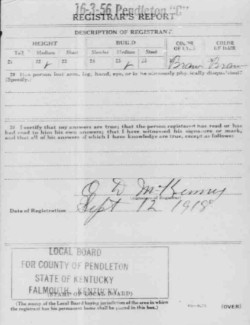 16-3-56 Pendleton "C"
REGISTRAR'S REPORT
DESCRIPTION OF REGISTRANT
HEIGHT BUILD COLOR OF EYES COLOR OF HAIR
Tall Medium Short Slender Medium Stout
Brown Brown
29 Has person lost arm, leg, hand, eye, or is he
(Specify).
30 I certify that my answers are true; that the person registered has read or has
had read to him his own answers; that I have witnessed his signature or mark,
and that all of his answers of which I have knowledge are true, except as follows:
Date of Registration Sept 12 1918
LOCAL BOARD
FOR COUNTY OF PENDLETON
STATE OF KENTUCKY
FALMOUTH, KENTUCKY.
(STAMP OF LOCAL BOARD)
(The stamp of the Local Board having jurisdiction of the area in which
the registrant has his permanent home shall be placed in this box.)
(OVER)